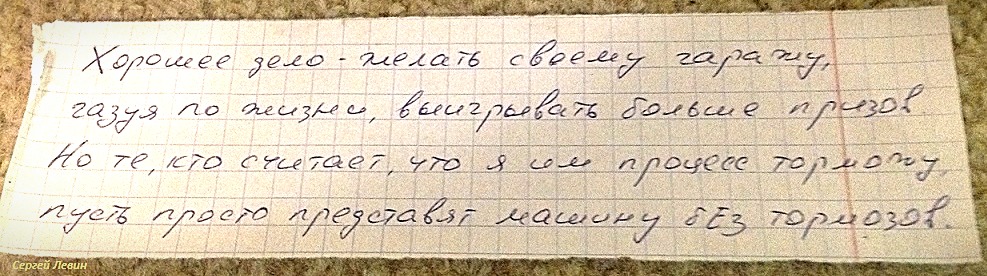 Хорошее дело - желать своему гаражу,
газуя по жизни, выигрывать больше призов.
Но те, кто считает, что я им процесс торможу,
пусть просто представят машину бЕз тормозов.
Сергей Левин